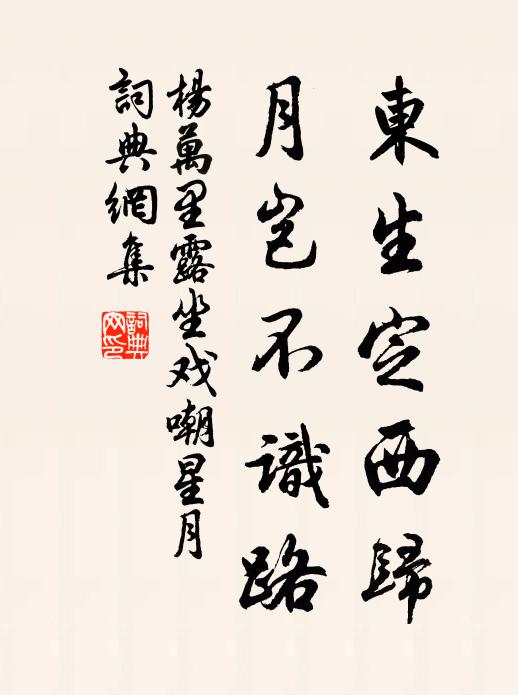 東生定西歸
月豈不識路
楊萬里露坐戏嘲星月
詞典網集
詞典
网印